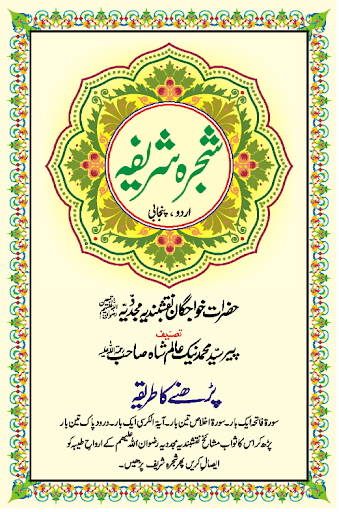 شجرہ شریفہ
اردو ، پنجابی
حضرات خواجگان نقشبندیہ مجددیہ
تصنیف
پیر سید محمد نیک عالم شاہ صاحب
پڑھنے کا طریقہ
سورۃ فاتحہ ایک بار۔ سورۃ اخلاص تین بار۔ آیۃ الکرسی ایک بار۔ درود پاک تین بار
پڑھ کر اس کا ثواب مشائخ نقشبندیہ مجددیہ رضوان اللہ علیھم کے ارواح طیبہ کو
ایصال کریں پھر شجرہ شریف پڑھیں۔